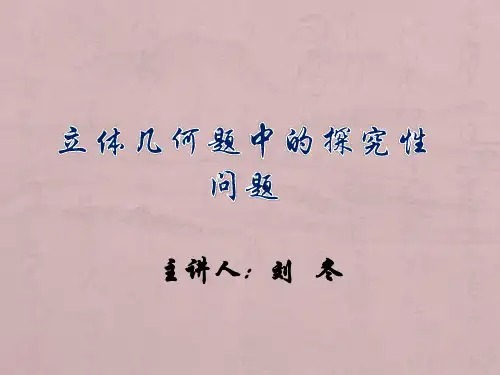 立体几何题中的探究性
问题
主讲人：刘 冬